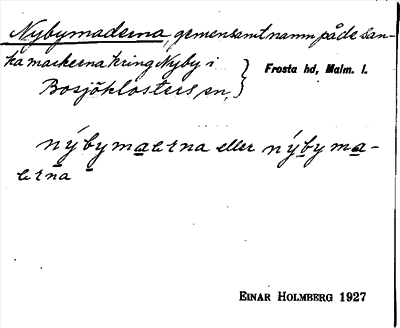 Nybymaderna, gemensamt namn på de san-
ka markerna kring Nyby i
Bosjöklosters sn,
Frosta hd, Malm. l.
nýbymaerna eller nýbyma-
erna
EINAR HOLMBERG 1927